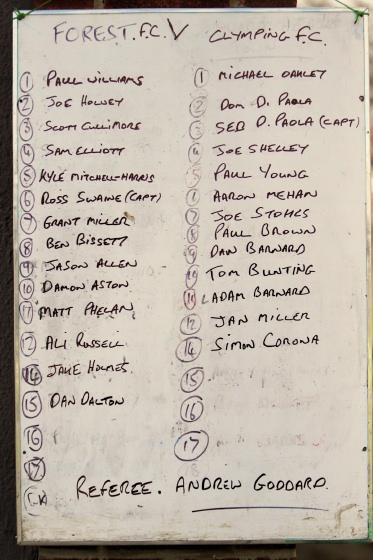 FOREST. F.C. V CLYMPING F.C.
1 PAUL WILLIAMS
2 JOE HOLVEY
3 SCOTT CULLIMORE
4 SAM ELLIOTT
5 KYLE MITCHELL-HARRIS
6 ROSS SWAINE (CAPT)
7 GRANT MILLER
8 BEN BISSETT
9 JASON ALLEN
10 DAMON ASTON
11 MATT PHELAN
12 ALI RUSSELL
14 JAKE HOLMES
15 DAN DALTON
16
17
1 MICHAEL OAKLEY
2 DOM DI PAOLA
3 SEB D. PAOLA (CAPT)
4 JOE SHELLEY
5 PAUL YOUNG
AARON MEHAN
7 JOE STOKES
8 PAUL BROWN
9 DAN BARNARD
10 TOM BUNTING
11 ADAM BARNARD
12 JAN MILLER
14 SIMON CORONA
15
16
17
18
REFEREE. ANDREW GODDARD.